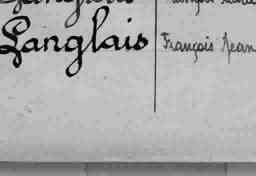 Langlais François Jean